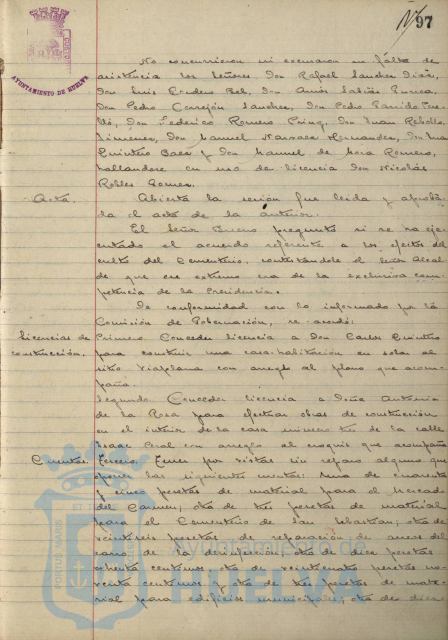 97
AYUNTAMIENTO DE HUELVA
No concurrieron ni excusaron su falta de
asistencia los señores Don Rafael Sanchez Diaz,
Don Luis Cordero Bel, Don Amós Sabrás
Don Pedro Cerrejón Sanchez, Don Pedro Garrido
Don Federico Romero Don Juan Rebollo
Jimenez, Don Manuel Hernandez, Don
Quintero Baez y Don Manuel de Mora Romero,
hallandose en uso de licencia Don Nicolás
Robles Gomez.
Acta. Abierta la sesión fue leida y aproba-
da el acta de la anterior.
El Señor preguntó si se ha eje-
cutado el acuerdo referente a los efectos del
culto del Cementerio, contestandole el Señor Alcal
de que ese extremo era de la exclusiva com-
petencia de la Presidencia.
De conformidad con lo informado por la
Comisión de Gobernación, se acordó:
Licencias de construcción. Primero. Conceder licencia a Don Carlos Quintero
para construir una casa-habitación en solar al
sitio Viaplana con arreglo al plano que acom-
paña.
Segundo. Conceder licencia a Doña Antonia
de la Rosa para efectuar obras de construcción
en el interior de la casa número tres de la calle
Isaac Peral con arreglo al croquis que acompaña
Cuentas Tercero. Tener por vistas sin reparo alguno que
oponer las siguientes cuentas: Una de cincuenta
y cinco pesetas de material para el Mercado
del Carmen; otra de tres pesetas de material
para el Cementerio de San Sebastian; otra de
veintiseis pesetas de reparación de
carro de la desinfección; otra de diez pesetas
ochenta centimos; otra de veinticuatro pesetas no-
venta centimos y otra de tres pesetas de mate-
rial para edificios municipales; otra de
PORTUS MARIS
Ayuntamiento de
HUELVA